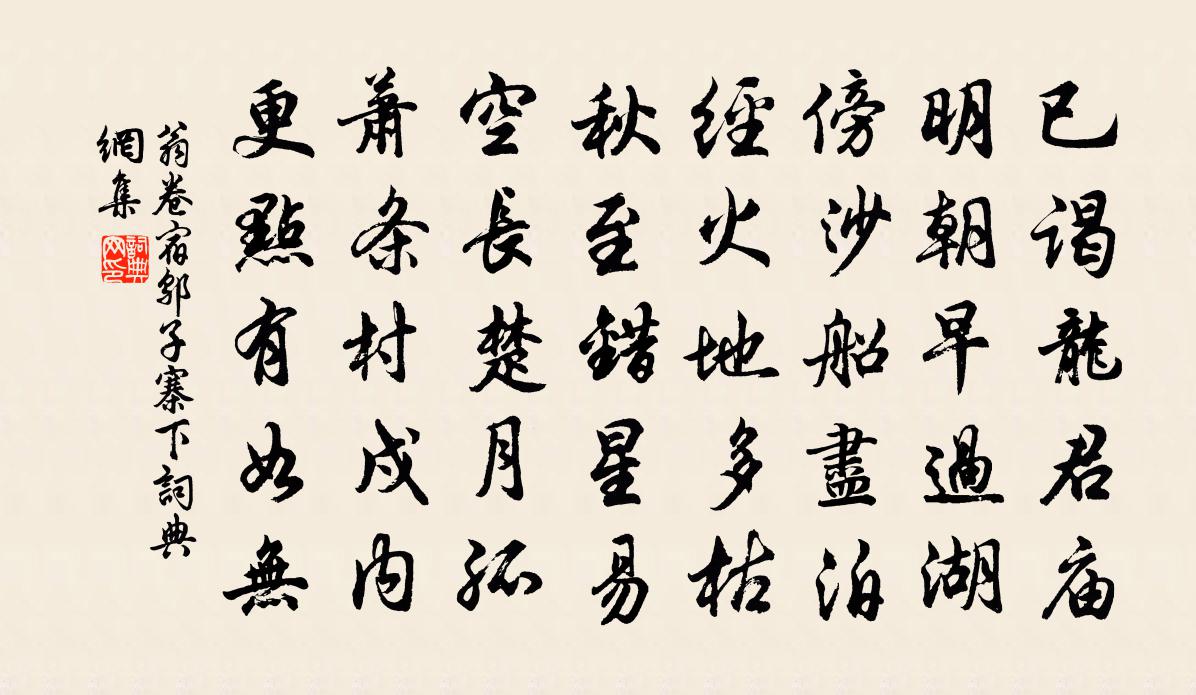 已谒龍君庙
明朝早過湖
傍沙船盡泊
經火地多枯
秋至錯星易
空長楚月孤
萧条村戍内
更點有如無
翁卷宿邬子寨下詞典
網集
詞典网印